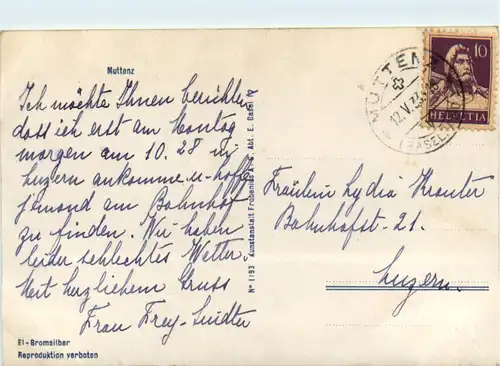 Muttenz
Ich möchte Ihnen berichten
dass ich erst am Montag
morgen am 10.28 in
Luzern ankomme u. hoffe
jemand am Bahnhof
zu finden. Wir haben
leider schlechtes Wetter.
Mit herzlichem Gruss
Frau Frey-
El-Bromsilber
Reproduktion verboten
Nº 1193 Kunstanstalt Frobenius A. G. Abt. E. Basel
10
HELVETIA
MUTTENZ
12.V.
(BASEL
Fräulein Lydia
Bahnhofst. 21.
Luzern.